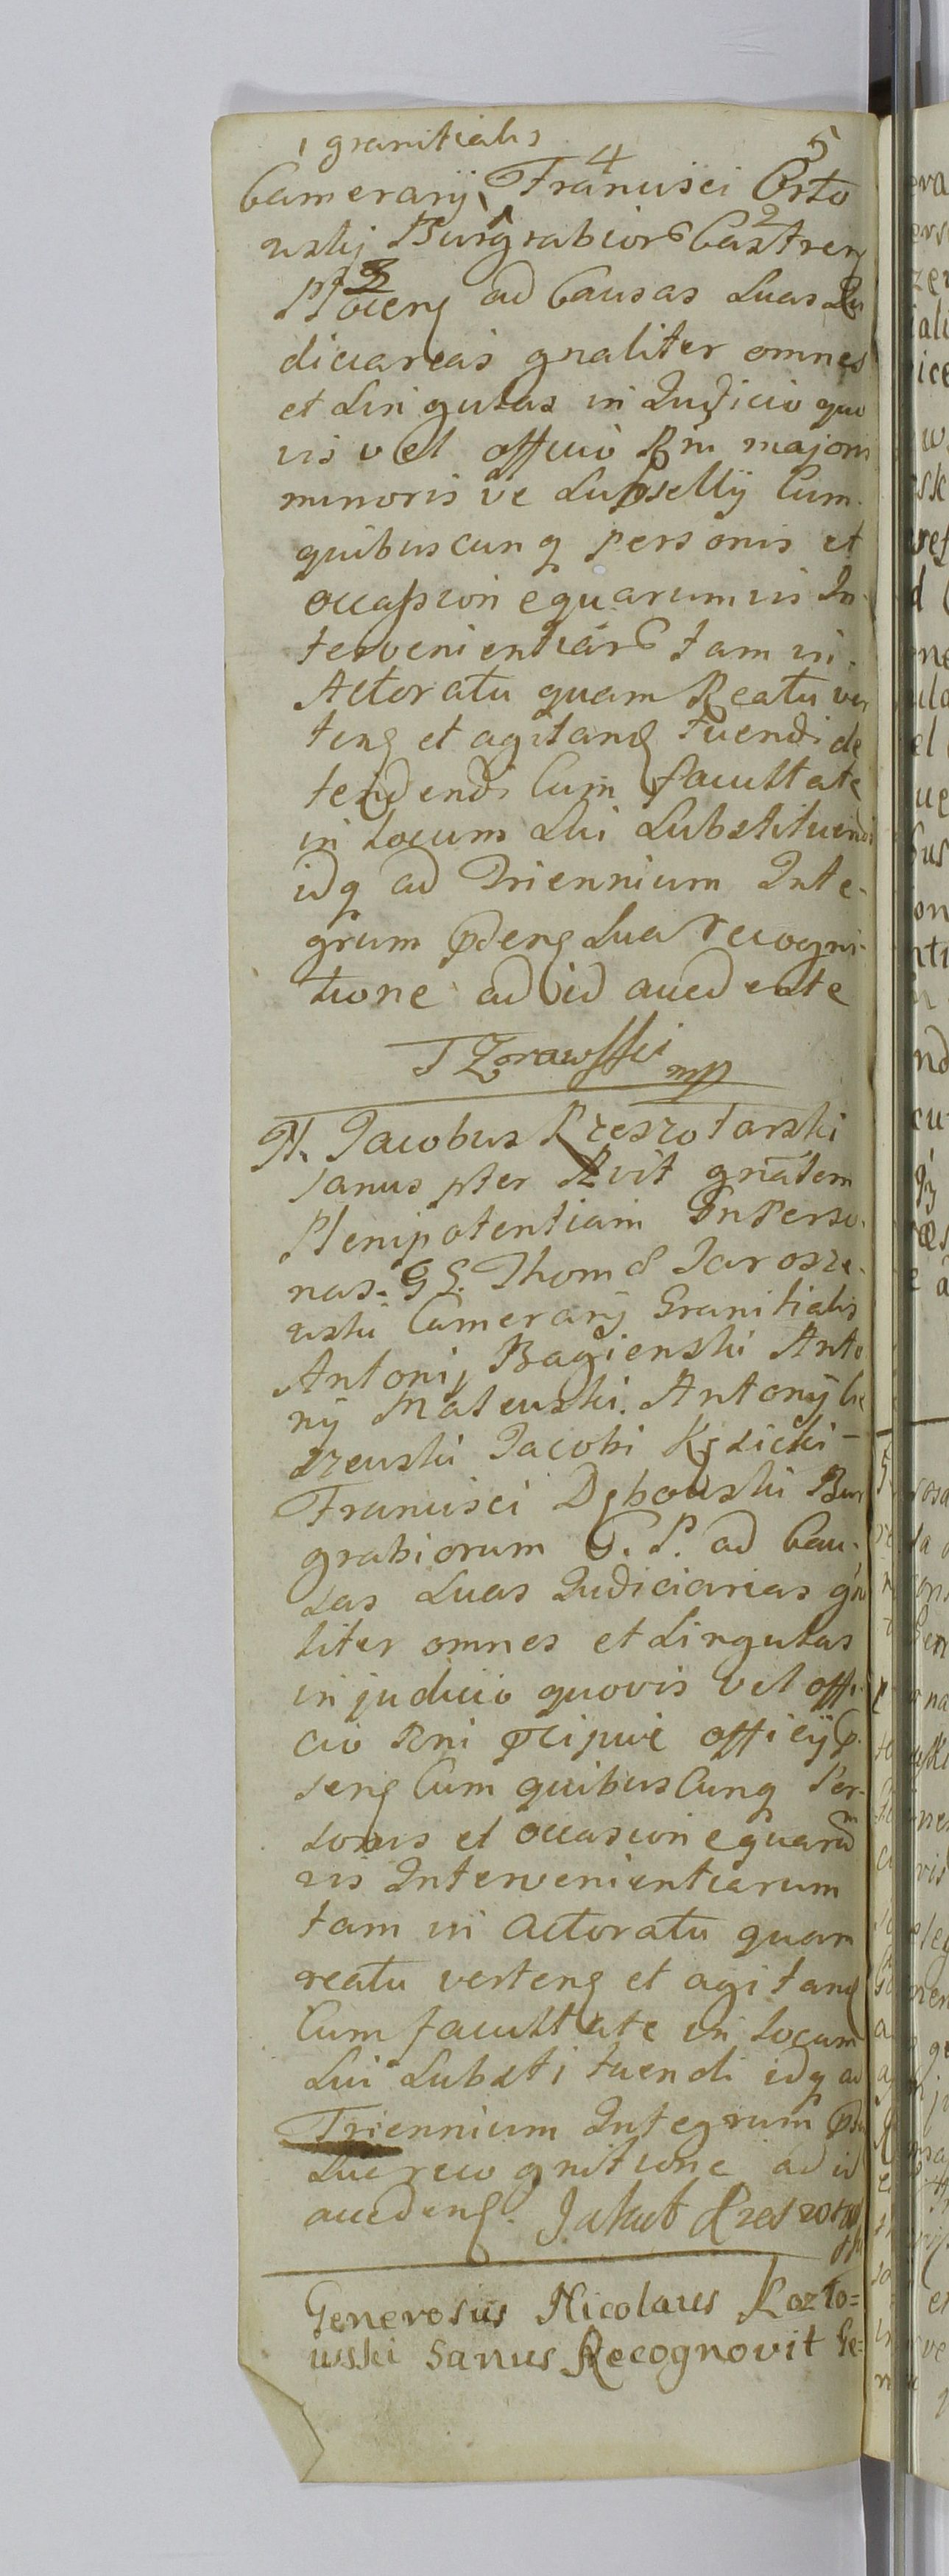 1 granitialis
Camerarij 4 Francisci 5 Orto
wskij Burgrabior 2 Castren
3 Plocen ad Causas Suas Ju
diciareas gnaliter omnes
et Singulas in Judicio quo
vis vel officio Rni majoris
minoris ve Subselly Cum
quibuscunq personis et
occasion equarumvis In-
tervenientiar tam in
Actoratu quam Reatu ver
ten et agitand tuendi de
fendendi Cum facultate
in locum Sui Substituendi
idq ad Triennium Inte-
grum pden Sua recogni-
tione ad id accedente
T Zorawski mp
N. Jacobus Przeszotarski
Sanus pter Rvit gnatem
Plenipotentiam In Perso-
nas GG. Thom Jarosze-
wski Camerarij Granitialis
Antonij Bagienski Anto
nij Matewski Antonij
Jacobi Kęsicki -
Francisci Dębowski Bur
grabiorum C. P. ad Cau-
sas Suas Judiciarias gna
liter omnes et Singulas
in judicio quovis vel offi-
cio Rni pcipue officij p-
sens Cum quibus Cunq Per-
sonis et occasion equarum
vis Intervenientiarum
tam in Actoratu quam
reatu verten et agitand
Cum facultate in locum
Sui Substituendi idq ad
Triennium Integrum pden
Sua recognitione ad id
acceden. Jakub Przeszotarski
Generosus Nicolaus Kozło=
wski Sanus Recognovit Ge=